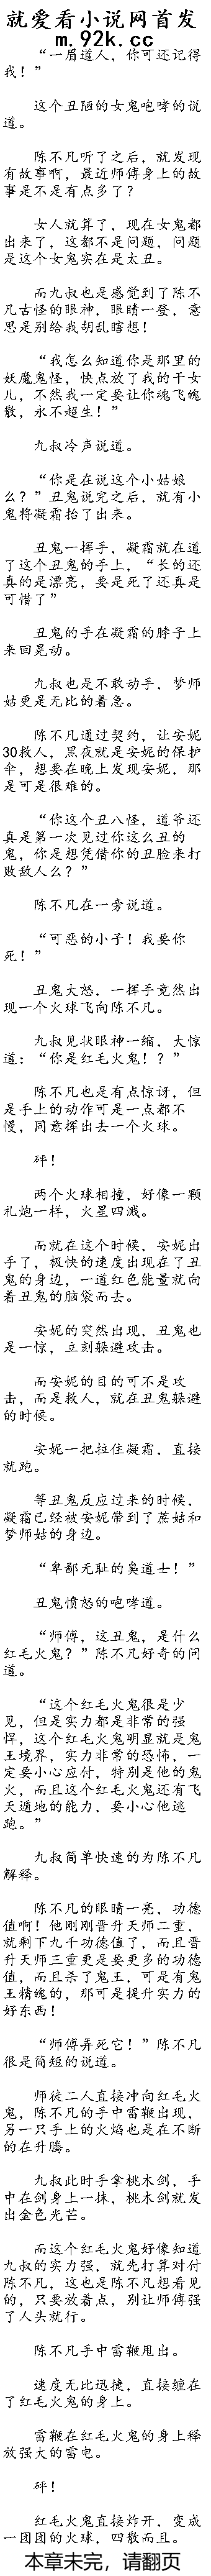 就爱看小说网首发
m.92k.cc
“一眉道人，你可还记得
我！”
这个丑陋的女鬼咆哮的说
道。
陈不凡听了之后，就发现
有故事啊，最近师傅身上的故
事是不是有点多了？
女人就算了，现在女鬼都
出来了，这都不是问题，问题
是这个女鬼实在是太丑。
而九叔也是感觉到了陈不
凡古怪的眼神，眼睛一登，意
思是别给我胡乱瞎想！
“我怎么知道你是那里的
妖魔鬼怪，快点放了我的干女
儿，不然我一定要让你魂飞魄
散，永不超生！”
九叔冷声说道。
“你是在说这个小姑娘
么？”丑鬼说完之后，就有小
鬼将凝霜抬了出来。
丑鬼一挥手，凝霜就在道
了这个丑鬼的手上，“长的还
真的是漂亮，要是死了还真是
可惜了”
丑鬼的手在凝霜的脖子上
来回晃动。
九叔也是不敢动手，梦师
姑更是无比的着急。
陈不凡通过契约，让安妮
30救人，黑夜就是安妮的保护
伞，想要在晚上发现安妮，那
是可是很难的。
“你这个丑八怪，道爷还
真是第一次见过你这么丑的
鬼，你是想凭借你的丑脸来打
败敌人么？”
陈不凡在一旁说道。
“可恶的小子！我要你
死！”
丑鬼大怒，一挥手竟然出
现一个火球飞向陈不凡。
九叔见状眼神一缩，大惊
道：“你是红毛火鬼！？”
陈不凡也是有点惊讶，但
是手上的动作可是一点都不
慢，同意挥出去一个火球。
砰！
两个火球相撞，好像一颗
礼炮一样，火星四溅。
而就在这个时候，安妮出
手了，极快的速度出现在了丑
鬼的身边，一道红色能量就向
着丑鬼的脑袋而去。
安妮的突然出现，丑鬼也
是一惊，立刻躲避攻击。
而安妮的目的可不是攻
击，而是救人，就在丑鬼躲避
的时候。
安妮一把拉住凝霜，直接
就跑。
等丑鬼反应过来的时候，
凝霜已经被安妮带到了蔗姑和
梦师姑的身边。
“卑鄙无耻的臭道士！”
丑鬼愤怒的咆哮道。
“师傅，这丑鬼，是什么
红毛火鬼？”陈不凡好奇的问
道。
“这个红毛火鬼很是少
见，但是实力都是非常的强
悍，这个红毛火鬼明显就是鬼
王境界，实力非常的恐怖，一
定要小心应付，特别是他的鬼
火，而且这个红毛火鬼还有飞
天遁地的能力，要小心他逃
跑。”
九叔简单快速的为陈不凡
解释。
陈不凡的眼睛一亮，功德
值啊！他刚刚晋升天师二重，
就剩下九千功德值了，而且晋
升天师三重更是要更多的功德
值，而且杀了鬼王，可是有鬼
王精魄的，那可是提升实力的
好东西！
“师傅弄死它！”陈不凡
很是简短的说道。
师徒二人直接冲向红毛火
鬼，陈不凡的手中雷鞭出现，
另一只手上的火焰也是在不断
的在升腾。
九叔此时手拿桃木剑，手
中在剑身上一抹，桃木剑就发
出金色光芒。
而这个红毛鬼好像知道
九叔的实力强，就先打算对付
陈不凡，这也是陈不凡想看见
的，只要放着点，别让师傅强
了人头就行。
陈不凡手中雷鞭甩出。
速度无比迅捷，直接缠在
了红毛火鬼的身上。
雷鞭在红毛火鬼的身上释
放强大的雷电。
砰！
红毛火鬼直接炸开，变成
一团团的火球，四散而且。
本章未完，请翻页